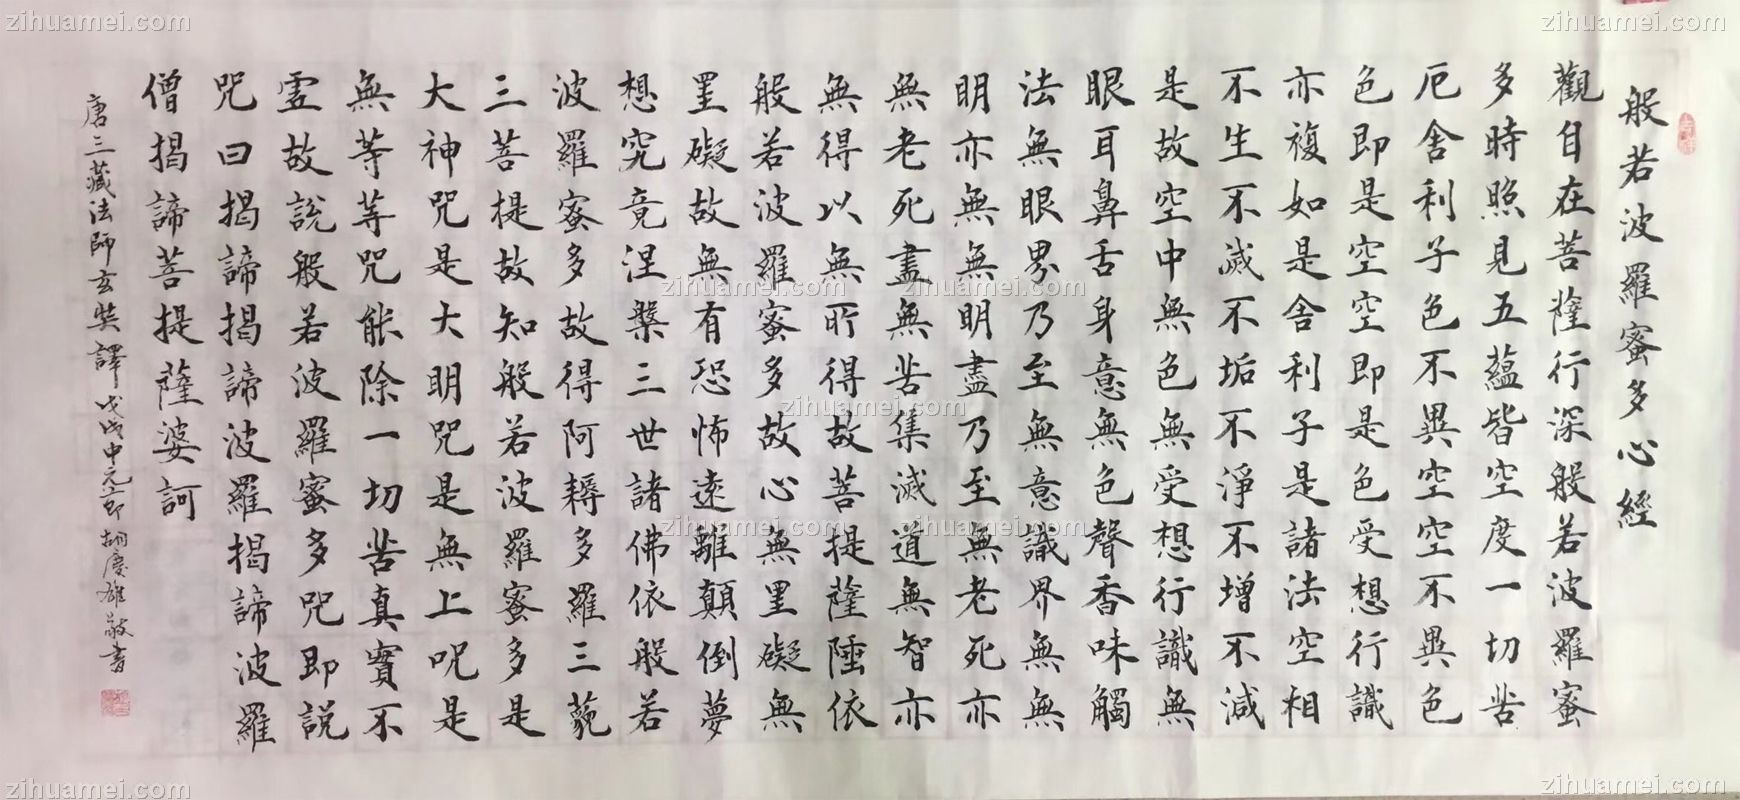 zihuamei.com zihuamei.com zihuamei.com
般若波羅蜜多心經
觀自在菩薩行深般若波羅蜜
多時照見五蘊皆空度一切苦
厄舍利子色不異空空不異色
色即是空空即是色受想行識
亦複如是舍利子是諸法空相
不生不滅不垢不淨不增不減
是故空中無色無受想行識無
眼耳鼻舌身意無色聲香味觸
法無眼界乃至無意識界無無
明亦無無明盡乃至無老死亦
無老死盡無苦集滅道無智亦
無得以無所得故菩提薩埵依
般若波羅蜜多故心無里礙無
罣礙故無有恐怖遠離顛倒夢
想究竟涅槃三世諸佛依般若
波羅蜜多故得阿耨多羅三藐
三菩提故知般若波羅蜜多是
大神咒是大明咒是無上咒是
無等等咒能除一切苦真實不
虛故說般若波羅蜜多咒即說
咒曰揭諦揭諦波羅揭諦波羅
僧揭諦菩提薩婆訶
唐三藏法師玄奘譯 戊戌中元節 胡慶雄敬書
zihuamei.com zihuamei.com
zihuamei.com zihuamei.com
zihuamei.com zihuamei.com
zihuamei.com zihuamei.com zihuamei.com